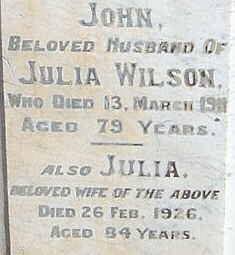 JOHN,
BELOVED HUSBAND OF
JULIA WILSON,
WHO DIED 13, MARCH 1911
AGED 79 YEARS.
ALSO JULIA.
BELOVED WIFE OF THE ABOVE
DIED 26 FEB. 1926.
AGED 84 YEARS.